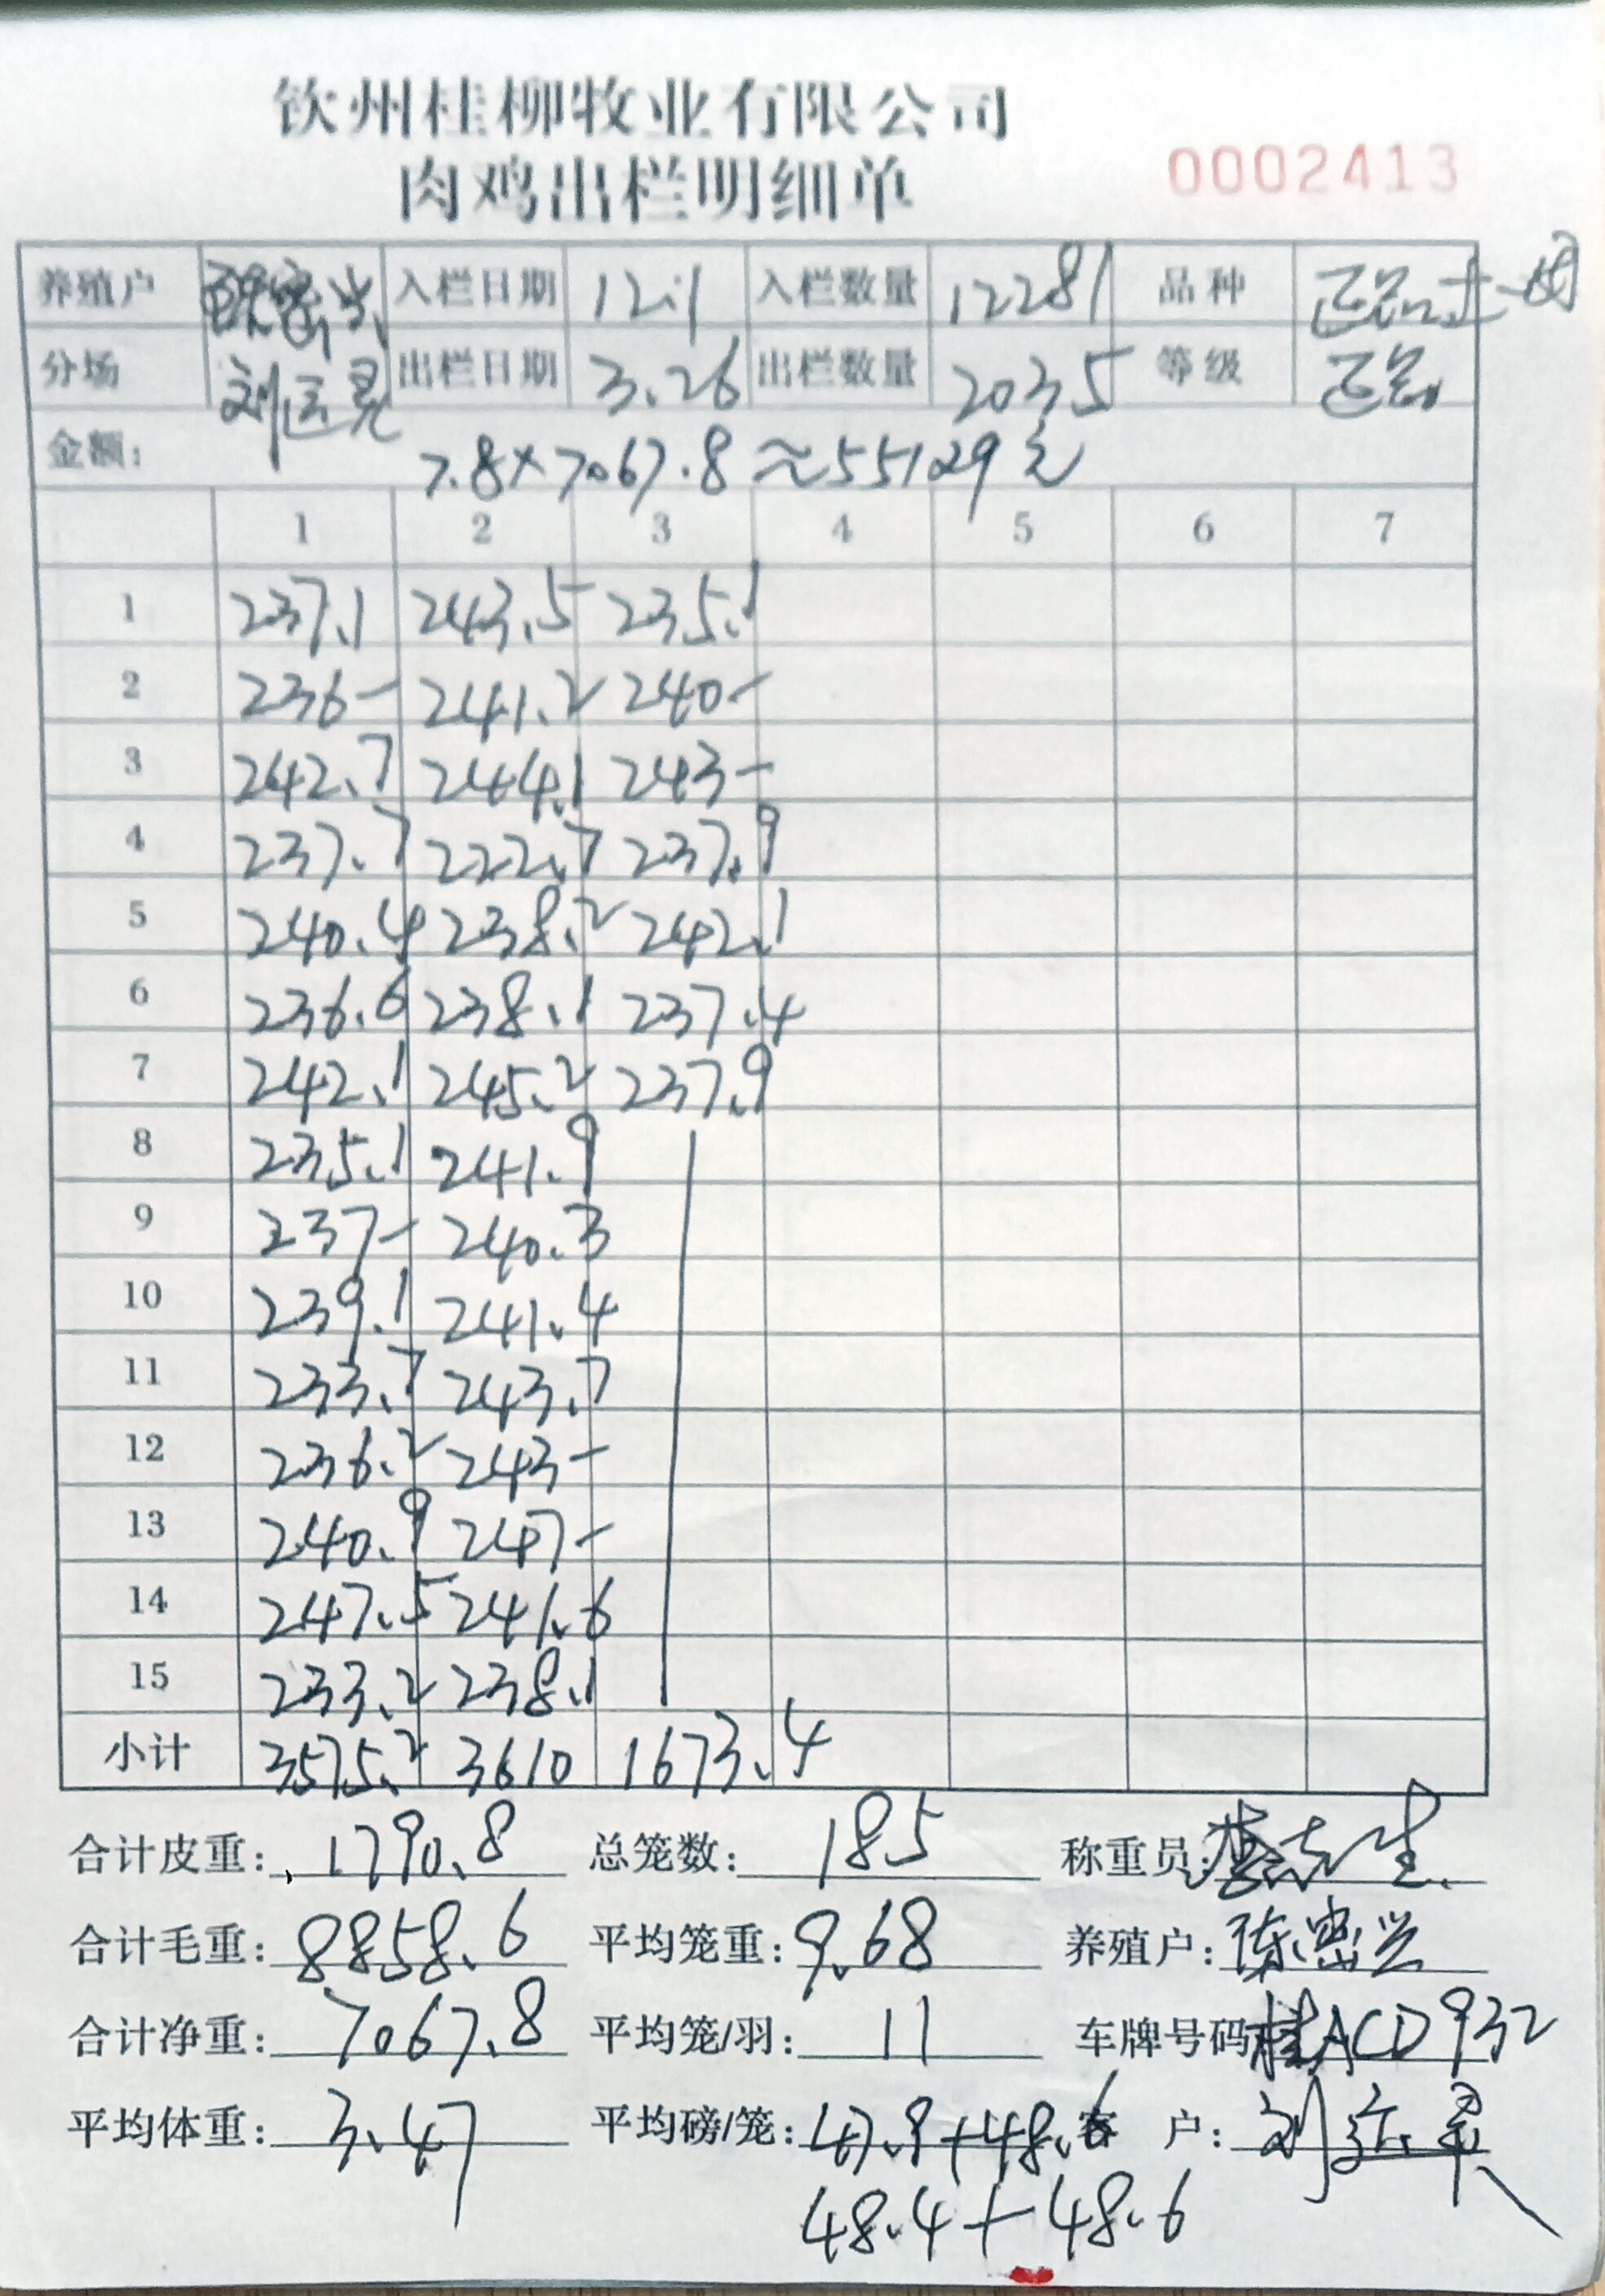 钦州桂柳牧业有限公司
肉鸡出栏明细单 0002413
养殖户 入栏日期 12.1 入栏数量 12281 品种
分场 出栏日期 3.26 出栏数量 2035 等级
金额: 7.8×7067.8≈55129元
1 2 3 4 5 6 7
1 237.1 243.5 235.1
2 236- 241.2 240-
3 242.7 244.1 243-
4 237.7 222.7 237.9
5 240.4 238.2 242.1
6 236.6 238.1 237.4
7 242.1 245.2 237.9
8 235.1 241.9
9 237- 240.3
10 239.1 241.4
11 233.7 243.7
12 236.2 243-
13 240.9 247-
14 247.5 241.6
15 233.2 238.1
小计 3575.2 3610 1673.4
合计皮重: 1790.8 总笼数: 185 称重员:
合计毛重: 8858.6 平均笼重: 9.68 养殖户: 陈忠兴
合计净重: 7067.8 平均笼/羽: 11 车牌号码 桂ACD932
平均体重: 3.47 平均磅/笼: 47.9+48.6 客 户:
48.4+48.6